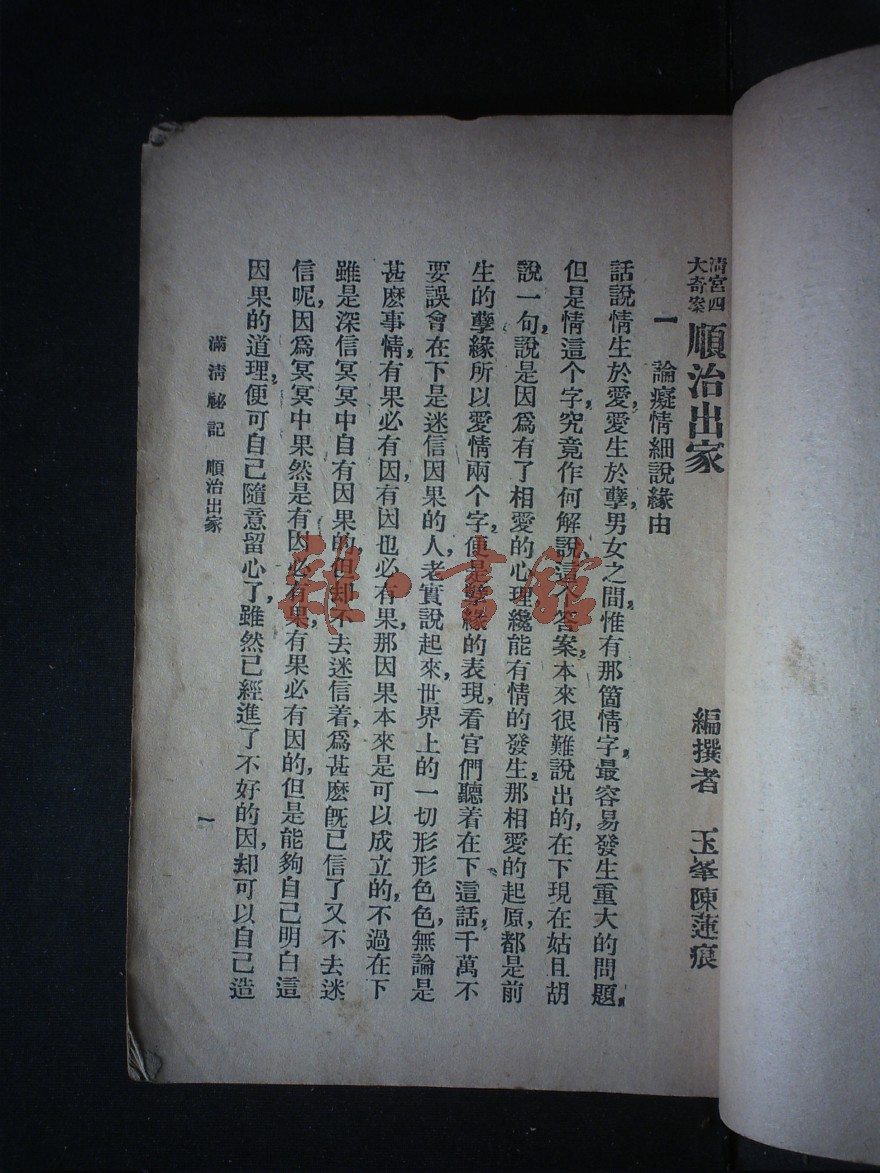 清宮四
大奇案
順治出家
編撰者　玉峯陳蓮痕
一　論癡情細說緣由
話說情生於愛，愛生於孽，男女之間，惟有那箇情字，最容易發生重大的問題，
但是情這个字，究竟作何解說，這个答案，本來很難說出的，在下現在姑且胡
說一句，說是因爲有了相愛的心理，纔能有情的發生，那相愛的起原，都是前
生的孽緣，所以愛情兩个字，便是孽緣的表現，看官們聽着在下這話，千萬不
要誤會在下是迷信因果的人，老實說起來，世界上的一切形形色色，無論是
甚麽事情，有果必有因，有因也必有果，那因果本來是可以成立的，不過在下
雖是深信冥冥中自有因果的，但却不去迷信着，爲甚麽旣已信了又不去迷
信呢，因爲冥冥中果然是有因必有果，有果必有因的，但是能夠自己明白這
因果的道理，便可自己隨意留心了，雖然已經進了不好的因，却可以自己造
滿淸祕記　順治出家
一
種·書館